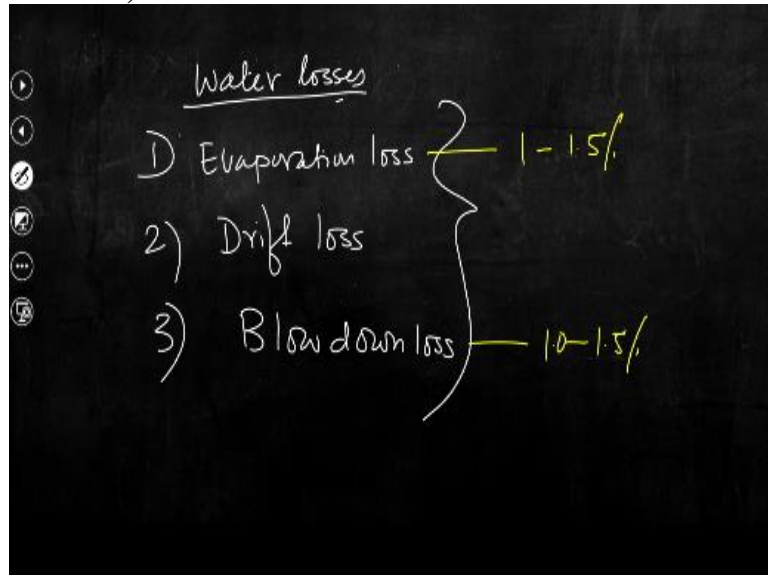 Water losses
1) Evaporation loss — 1 - 1.5%
2) Drift loss
3) Blow down loss — 1.0 - 1.5%